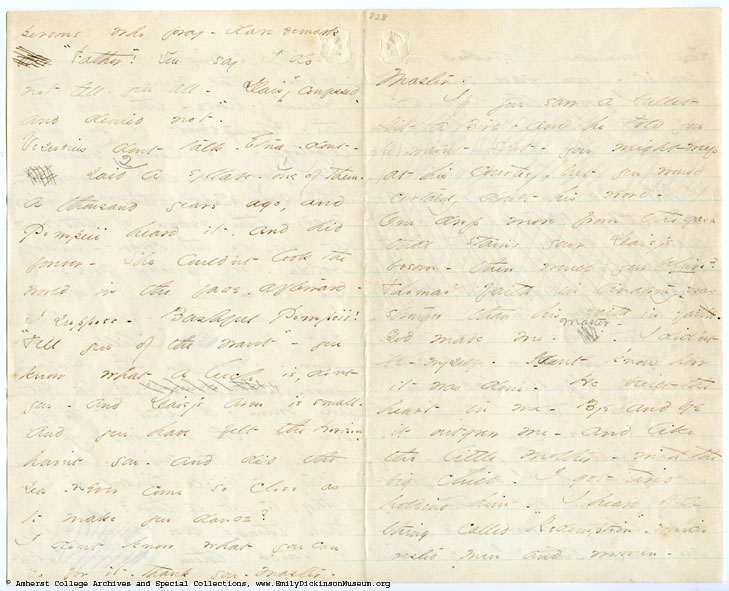 persons who pray - dare remark
"Father"! You say I do
not tell you all - Daisy "confessed
and denied not".
Vesuvius dont talk - Etna - dont -
2
1
said a syllable - one of them -
a thousand years ago, and
Pompeii heard it, and hid
forever - She could'nt look the
world in the face, afterward -
I suppose - Bashful Pompeii!
"Tell you of the want" - you
know what a leech is, dont
you - and Daisy's arm is small -
and you have felt the horizon
hav'nt you - and did the
sea - never come so close as
to make you dance?
I dont know what you can
do for it - thank you - Master -
828
Master.
If you saw a bullet
hit a Bird - and he told you
he was'nt shot - you might weep
at his courtesy, but you would
certainly doubt his word -
One drop more from the gash
that stains your Daisy's
bosom - then would you believe?
Thomas' faith in Anatomy, was
stronger than his faith in faith.
Master
God made me - I did'nt
be - myself - I dont know how
it was done - He built the
heart in me - Bye and bye
it outgrew me - and like
the little mother - with the
big child - I got tired
holding him - I heard of a
thing called "Redemption" - which
rested men and women -
© Amherst College Archives and Special Collections, www.EmilyDickinsonMuseum.org